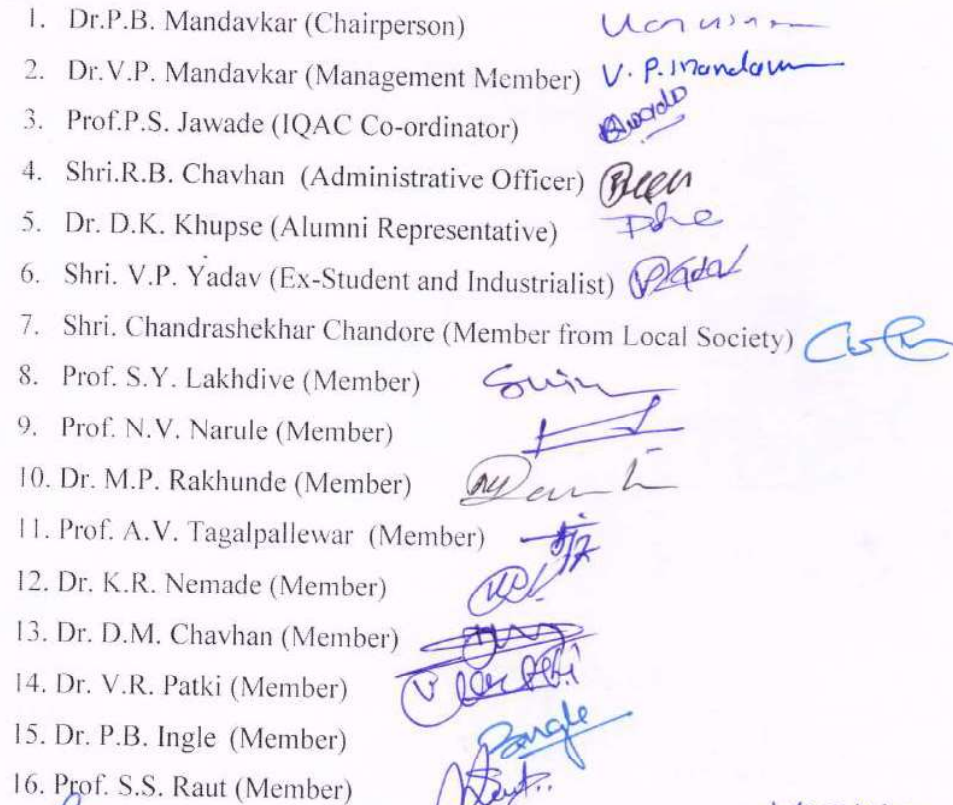 1. Dr.P.B. Mandavkar (Chairperson)
2. Dr.V.P. Mandavkar (Management Member) V. P. Mandavkar
3. Prof.P.S. Jawade (IQAC Co-ordinator)
4. Shri.R.B. Chavhan (Administrative Officer)
5. Dr. D.K. Khupse (Alumni Representative)
6. Shri. V.P. Yadav (Ex-Student and Industrialist)
7. Shri. Chandrashekhar Chandore (Member from Local Society)
8. Prof. S.Y. Lakhdive (Member)
9. Prof. N.V. Narule (Member)
10. Dr. M.P. Rakhunde (Member)
11. Prof. A.V. Tagalpallewar (Member)
12. Dr. K.R. Nemade (Member)
13. Dr. D.M. Chavhan (Member)
14. Dr. V.R. Patki (Member)
15. Dr. P.B. Ingle (Member)
16. Prof. S.S. Raut (Member)